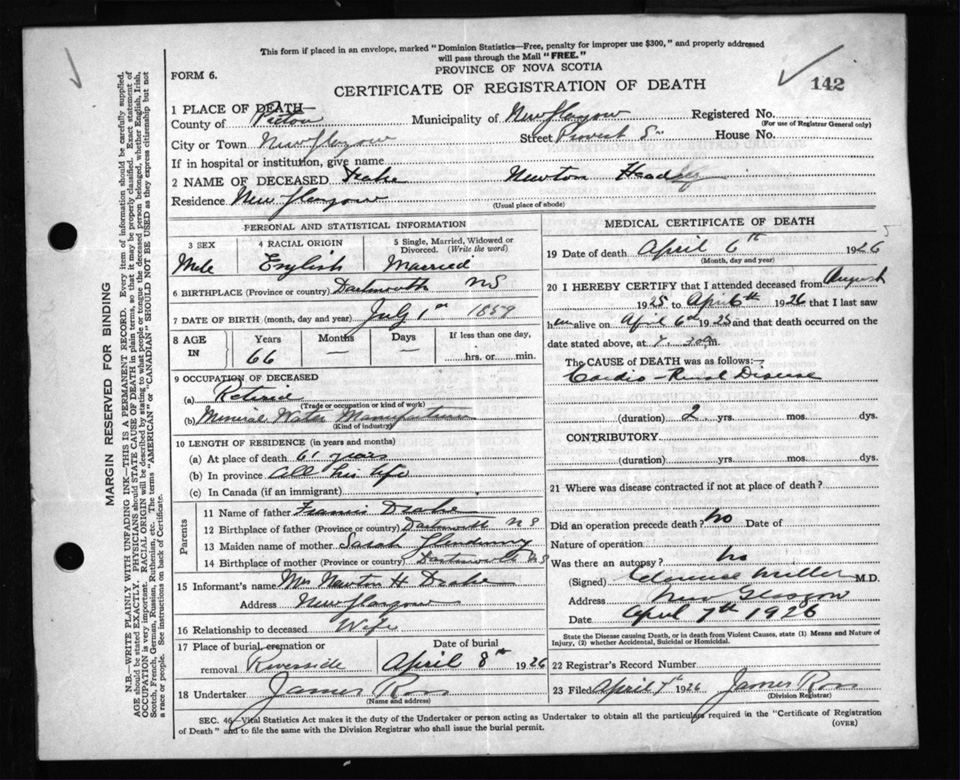 This form if placed in an envelope, marked "Dominion Statistics—Free, penalty for improper use $300," and properly addressed
will pass through the Mail "FREE."
PROVINCE OF NOVA SCOTIA
FORM 6.
CERTIFICATE OF REGISTRATION OF DEATH
142
1 PLACE OF DEATH—
County of Pictou Municipality of New Glasgow Registered No.
(For use of Registrar General only)
City or Town New Glasgow Street Provost St House No.
If in hospital or institution, give name
2 NAME OF DECEASED Drake Newton Headley
Residence New Glasgow
(Usual place of abode)
PERSONAL AND STATISTICAL INFORMATION
3 SEX 4 RACIAL ORIGIN 5 Single, Married, Widowed or
Divorced. (Write the word)
Male English Married
6 BIRTHPLACE (Province or country) Dartmouth NS
7 DATE OF BIRTH (month, day and year) July 1st 1859
8 AGE IN Years Months Days If less than one day,
66 — — hrs. or min.
9 OCCUPATION OF DECEASED
(a) Retired
(Trade or occupation or kind of work)
(b) Mineral Water Manufacturer
(Kind of industry)
10 LENGTH OF RESIDENCE (in years and months)
(a) At place of death 61 years
(b) In province All his life
(c) In Canada (if an immigrant)
Parents
11 Name of father Francis Drake
12 Birthplace of father (Province or country) Dartmouth NS
13 Maiden name of mother Sarah
14 Birthplace of mother (Province or country) Dartmouth NS
15 Informant's name Mrs Newton H. Drake
Address New Glasgow
16 Relationship to deceased Wife
17 Place of burial, cremation or Date of burial
removal Riverside April 8th 1926
18 Undertaker James Ross
(Name and address)
MEDICAL CERTIFICATE OF DEATH
19 Date of death April 6th 1926
(Month, day and year)
20 I HEREBY CERTIFY that I attended deceased from August
1925 to Apr 6th 1926 that I last saw
him alive on April 6th 1925 and that death occurred on the
date stated above, at 7.30 m.
The CAUSE of DEATH was as follows:—
Cardio-Renal Disease
(duration) 2 yrs. mos. dys.
CONTRIBUTORY
(duration) yrs. mos. dys.
21 Where was disease contracted if not at place of death?
Did an operation precede death? No Date of
Nature of operation
Was there an autopsy? No
(Signed) Clarence Miller M.D.
Address New Glasgow
Date April 7th 1926
State the Disease causing Death, or in death from Violent Causes, state (1) Means and Nature of
Injury, (2) whether Accidental, Suicidal or Homicidal.
22 Registrar's Record Number
23 Filed April 7th 1926 James Ross
(Division Registrar)
SEC. 46—Vital Statistics Act makes it the duty of the Undertaker or person acting as Undertaker to obtain all the particulars required in the "Certificate of Registration
of Death" and to file the same with the Division Registrar who shall issue the burial permit. (OVER)
MARGIN RESERVED FOR BINDING
N.B.—WRITE PLAINLY WITH UNFADING INK—THIS IS A PERMANENT RECORD. Every item of information should be carefully supplied.
AGE should be stated EXACTLY. PHYSICIANS should STATE CAUSE OF DEATH in plain terms, so that it may be properly classified. Exact statement of
OCCUPATION is very important. RACIAL ORIGIN will be described by stating to what people or tongue the deceased person belonged, whether English, Irish,
Scotch, French, German, Russian, Ruthenian, etc. The terms "AMERICAN" or "CANADIAN" SHOULD NOT BE USED as they express citizenship but not
a race or people. See instructions on back of Certificate.